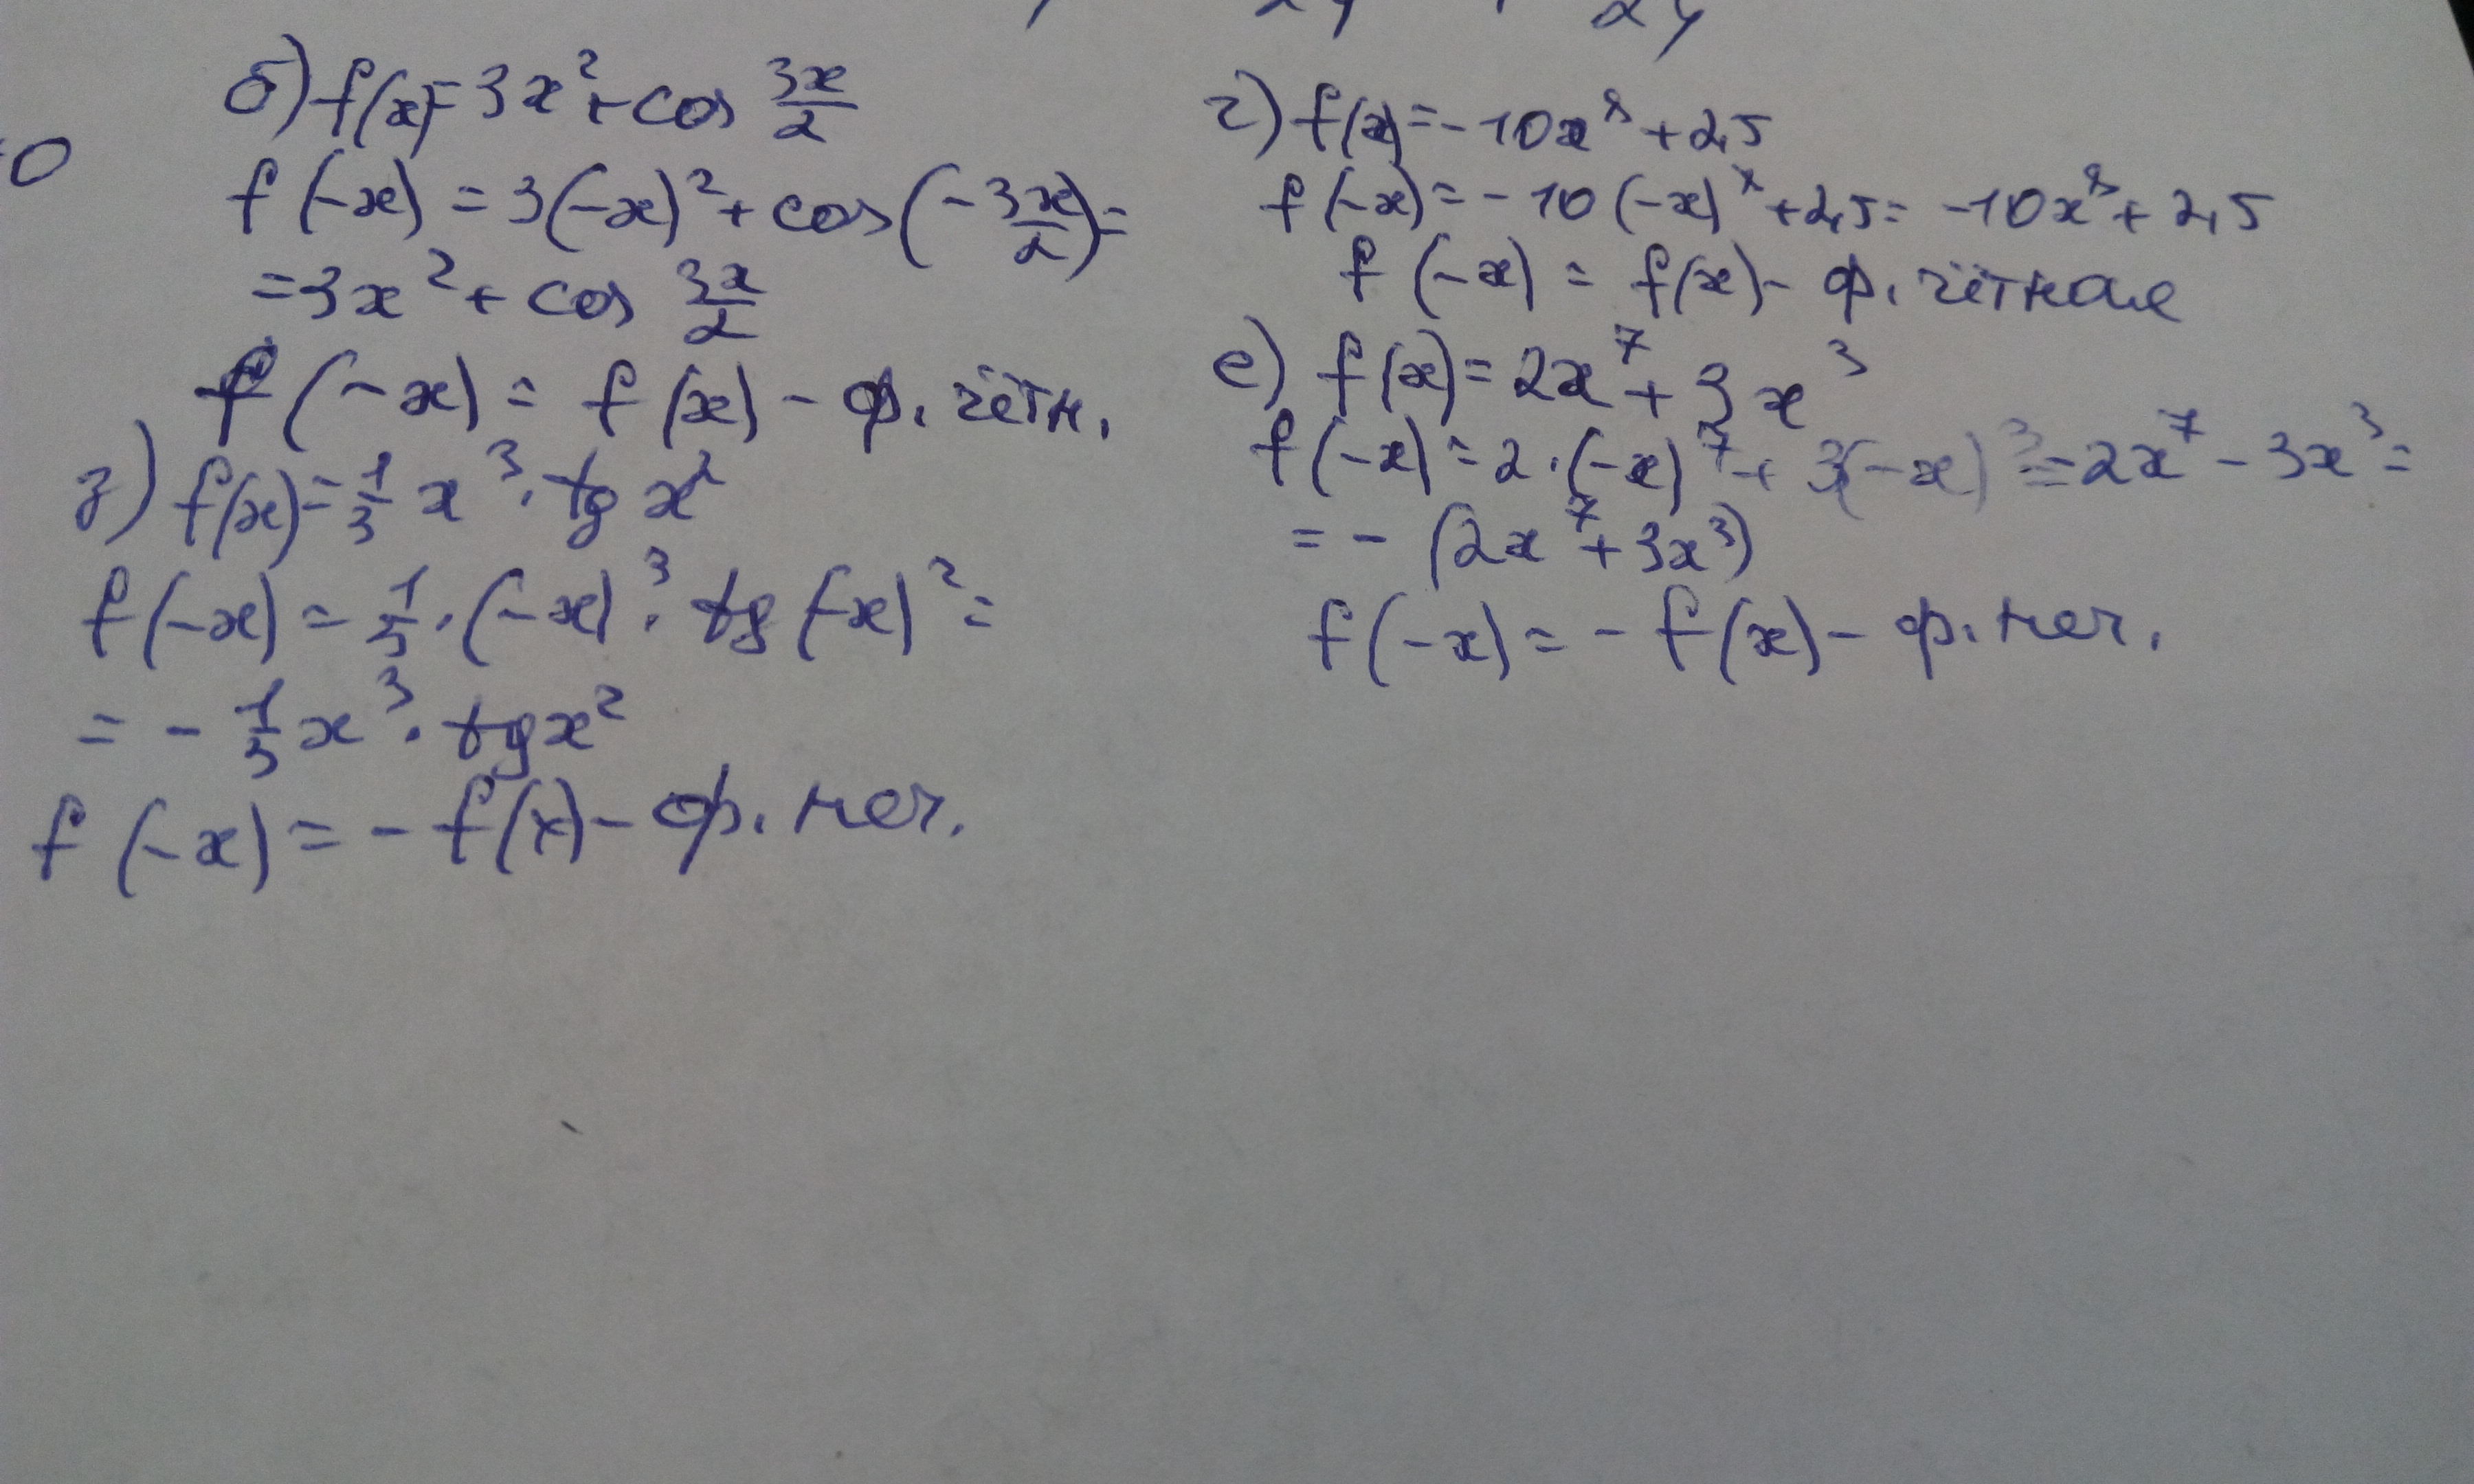 б) f(x)=3x²+cos 3x/2
f(-x)=3(-x)²+cos(-3x/2)=
=3x²+cos 3x/2
f(-x)=f(x)- ф. чётн.
з) f(x)=1/3 x³·tg x²
f(-x)=1/3·(-x)³·tg(-x)²=
=-1/3 x³·tgx²
f(-x)=-f(x)- ф. неч.
г) f(x)=-10x⁸+2,5
f(-x)=-10(-x)⁸+2,5=-10x⁸+2,5
f(-x)=f(x)- ф. чётная
е) f(x)=2x⁷+3x³
f(-x)=2·(-x)⁷+3(-x)³=-2x⁷-3x³=
=-(2x⁷+3x³)
f(-x)=-f(x)- ф. неч.